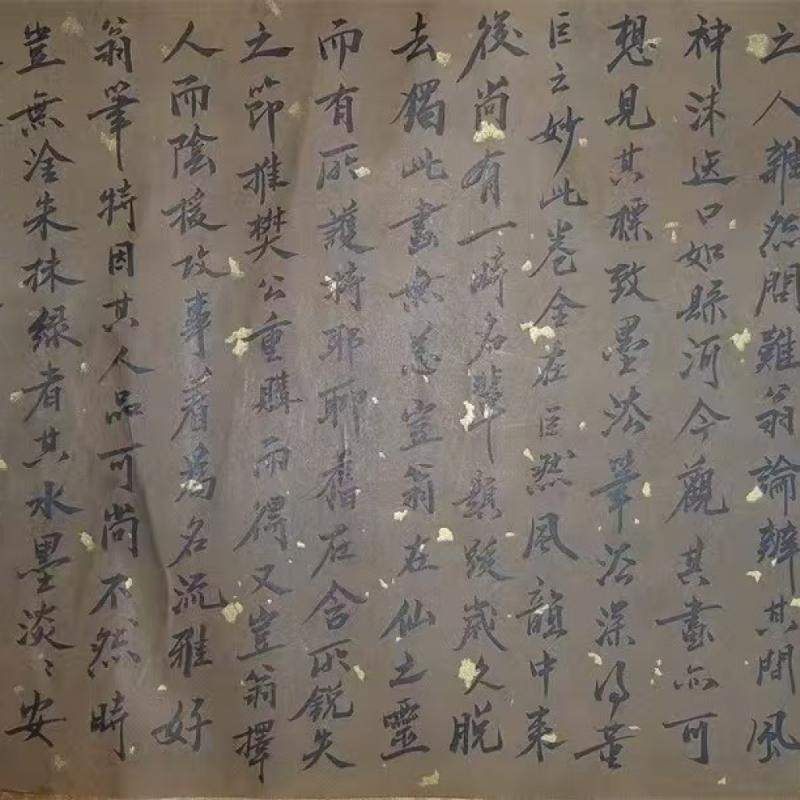 之人雜然問難翁論辨其間風
神沫迸口如懸河今觀其畫亦可
想見其標致墨法筆法深得董
巨之妙此卷全在巨然風韻中来
後尚有一時名輩題跋歲久脫
去獨此畫無恙豈翁在仙之靈
而有所護持耶耶舊在舍所銳失
之節推樊公重購而得又豈翁擇
人而陰授改事著為名流雅好
翁筆特因其人品可尚不然時
豈無塗朱抹綠者其水墨淡淡安